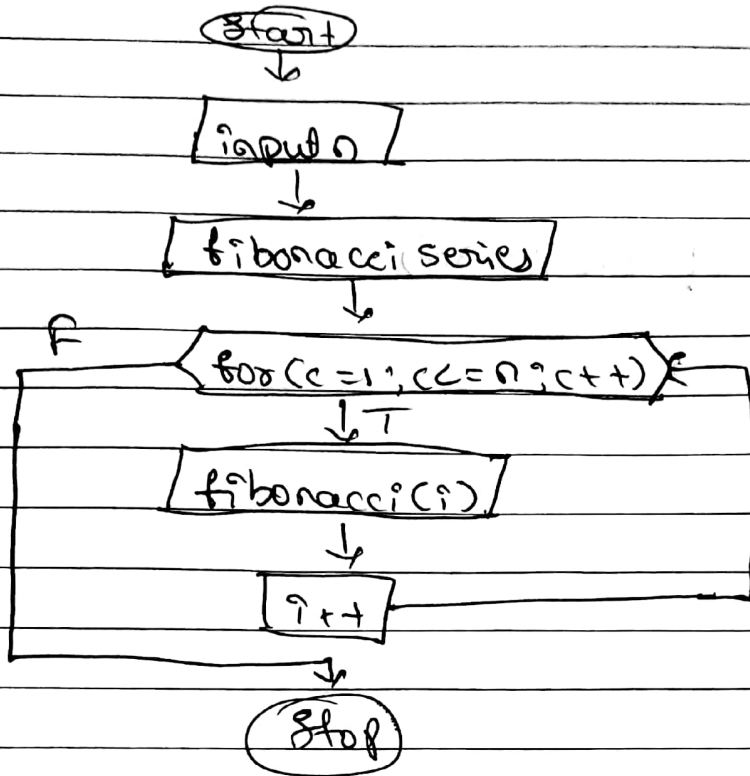 Start
input n
fibonacci series
F
for(c=1;c<=n;c++)
T
fibonacci(i)
i++
Stop